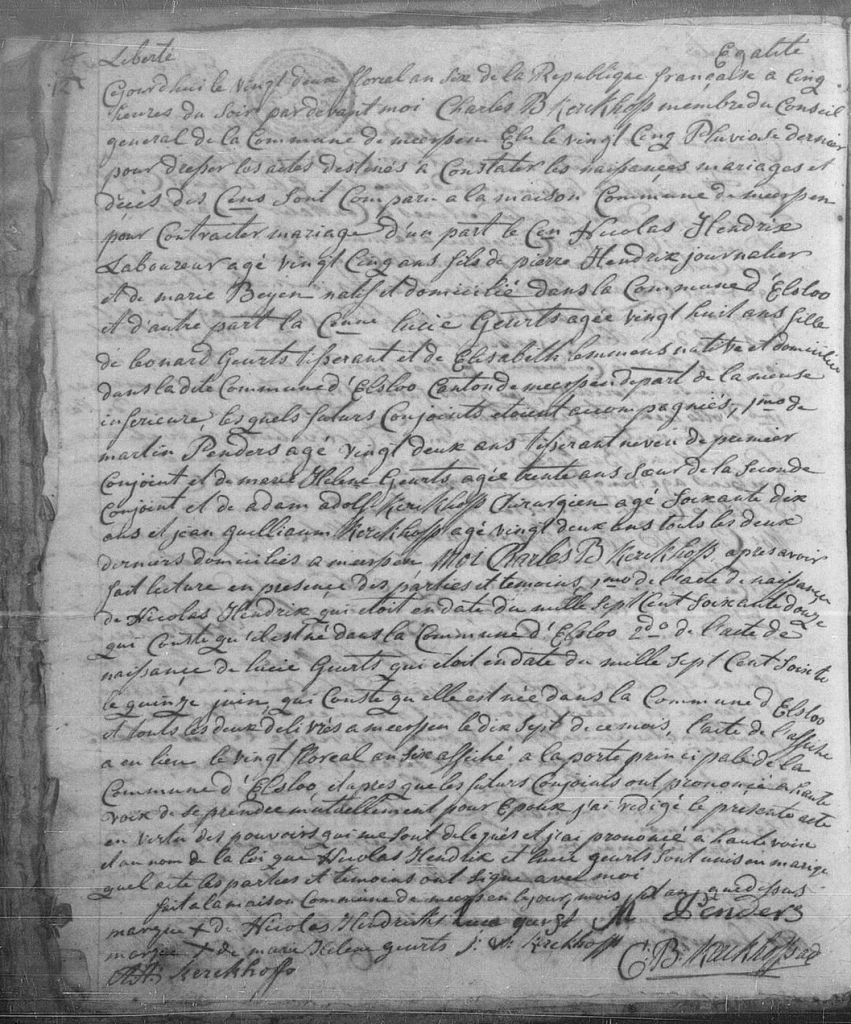 Liberté Egalité
Cejourdhui le vingt deux floreal an six de la Republique française a Cinq
heures du Soir par devant moi Charles B Kerckhoffs membre du Conseil
general de la Commune de meerssen Elu le vingt Cinq Pluviose dernier
pour dresser les actes destinés a Constater les naissances mariages et
décès des Cens Sont Comparu a la maison Commune de meerssen
pour Contracter mariage d'un part le Cen Nicolas Hendrix
Laboureur agé vingt Cinq ans fils de pierre Hendrix journalier
et de marie Beyen natif et domicilié dans la Commune d'Elsloo
et d'autre part la Cenne lucie Geurts agée vingt huit ans fille
de leonard Geurts tisserant et de Elisabeth lemmens native et domiciliée
dans la dite Commune d'Elsloo Canton de meerssen depart de la meuse
inferieure, les quels futurs Conjoints etoient accompagniés, 1mo de
martin Penders agé vingt deux ans tisserant neveu de premier
Conjoint et de marie Helene Geurts agée trente ans Sœur de la Seconde
Conjoint et de adam adolf Kerckhoffs Chirurgien agé Soixante dix
ans et jean guilliaum Kerckhoffs agé vingt deux ans touts les deux
derniers domiciliés a meerssen Moi Charles B Kerckhoffs apres avoir
fait lecture en presence des parties et temoins, 1mo de l'acte de naissance
de Nicolas Hendrix qui etoit en date du mille Sept Cent Soixante douze
qui Conste qu'il est né dans la Commune d'Elsloo 2do de l'acte de
naissance de lucie Geurts qui etoit en date du mille Sept Cent Soixte
le quinze juin, qui Conste qu'elle est née dans la Commune d'Elsloo
et touts les deux delivrés a meerssen le dix Sept de ce mois, l'acte de l'affiche
a eu lieu le vingt floreal an Six affiché a la porte principale de la
Commune d'Elsloo, et apres que les futurs Conjoints ont prononcé a haute
voix de se prendre mutuellement pour Epoux j'ai redigé le presente acte
en vertu des pouvoirs qui me Sont delegués et j'ai prononcé a haute voix
et au nom de la loi que Nicolas Hendrix et lucie geurts Sont unis en mariage
quel acte les parties et temoins ont Signé avec moi
fait a la maison Commune de meerssen le jour, mois et an que dessus
marque + de Nicolas Hendricks Luca geurst M Penders
marque + de marie Helene geurts J: W: Kerckhoffs
AA Kerckhoffs C:B. Kerckhoffs